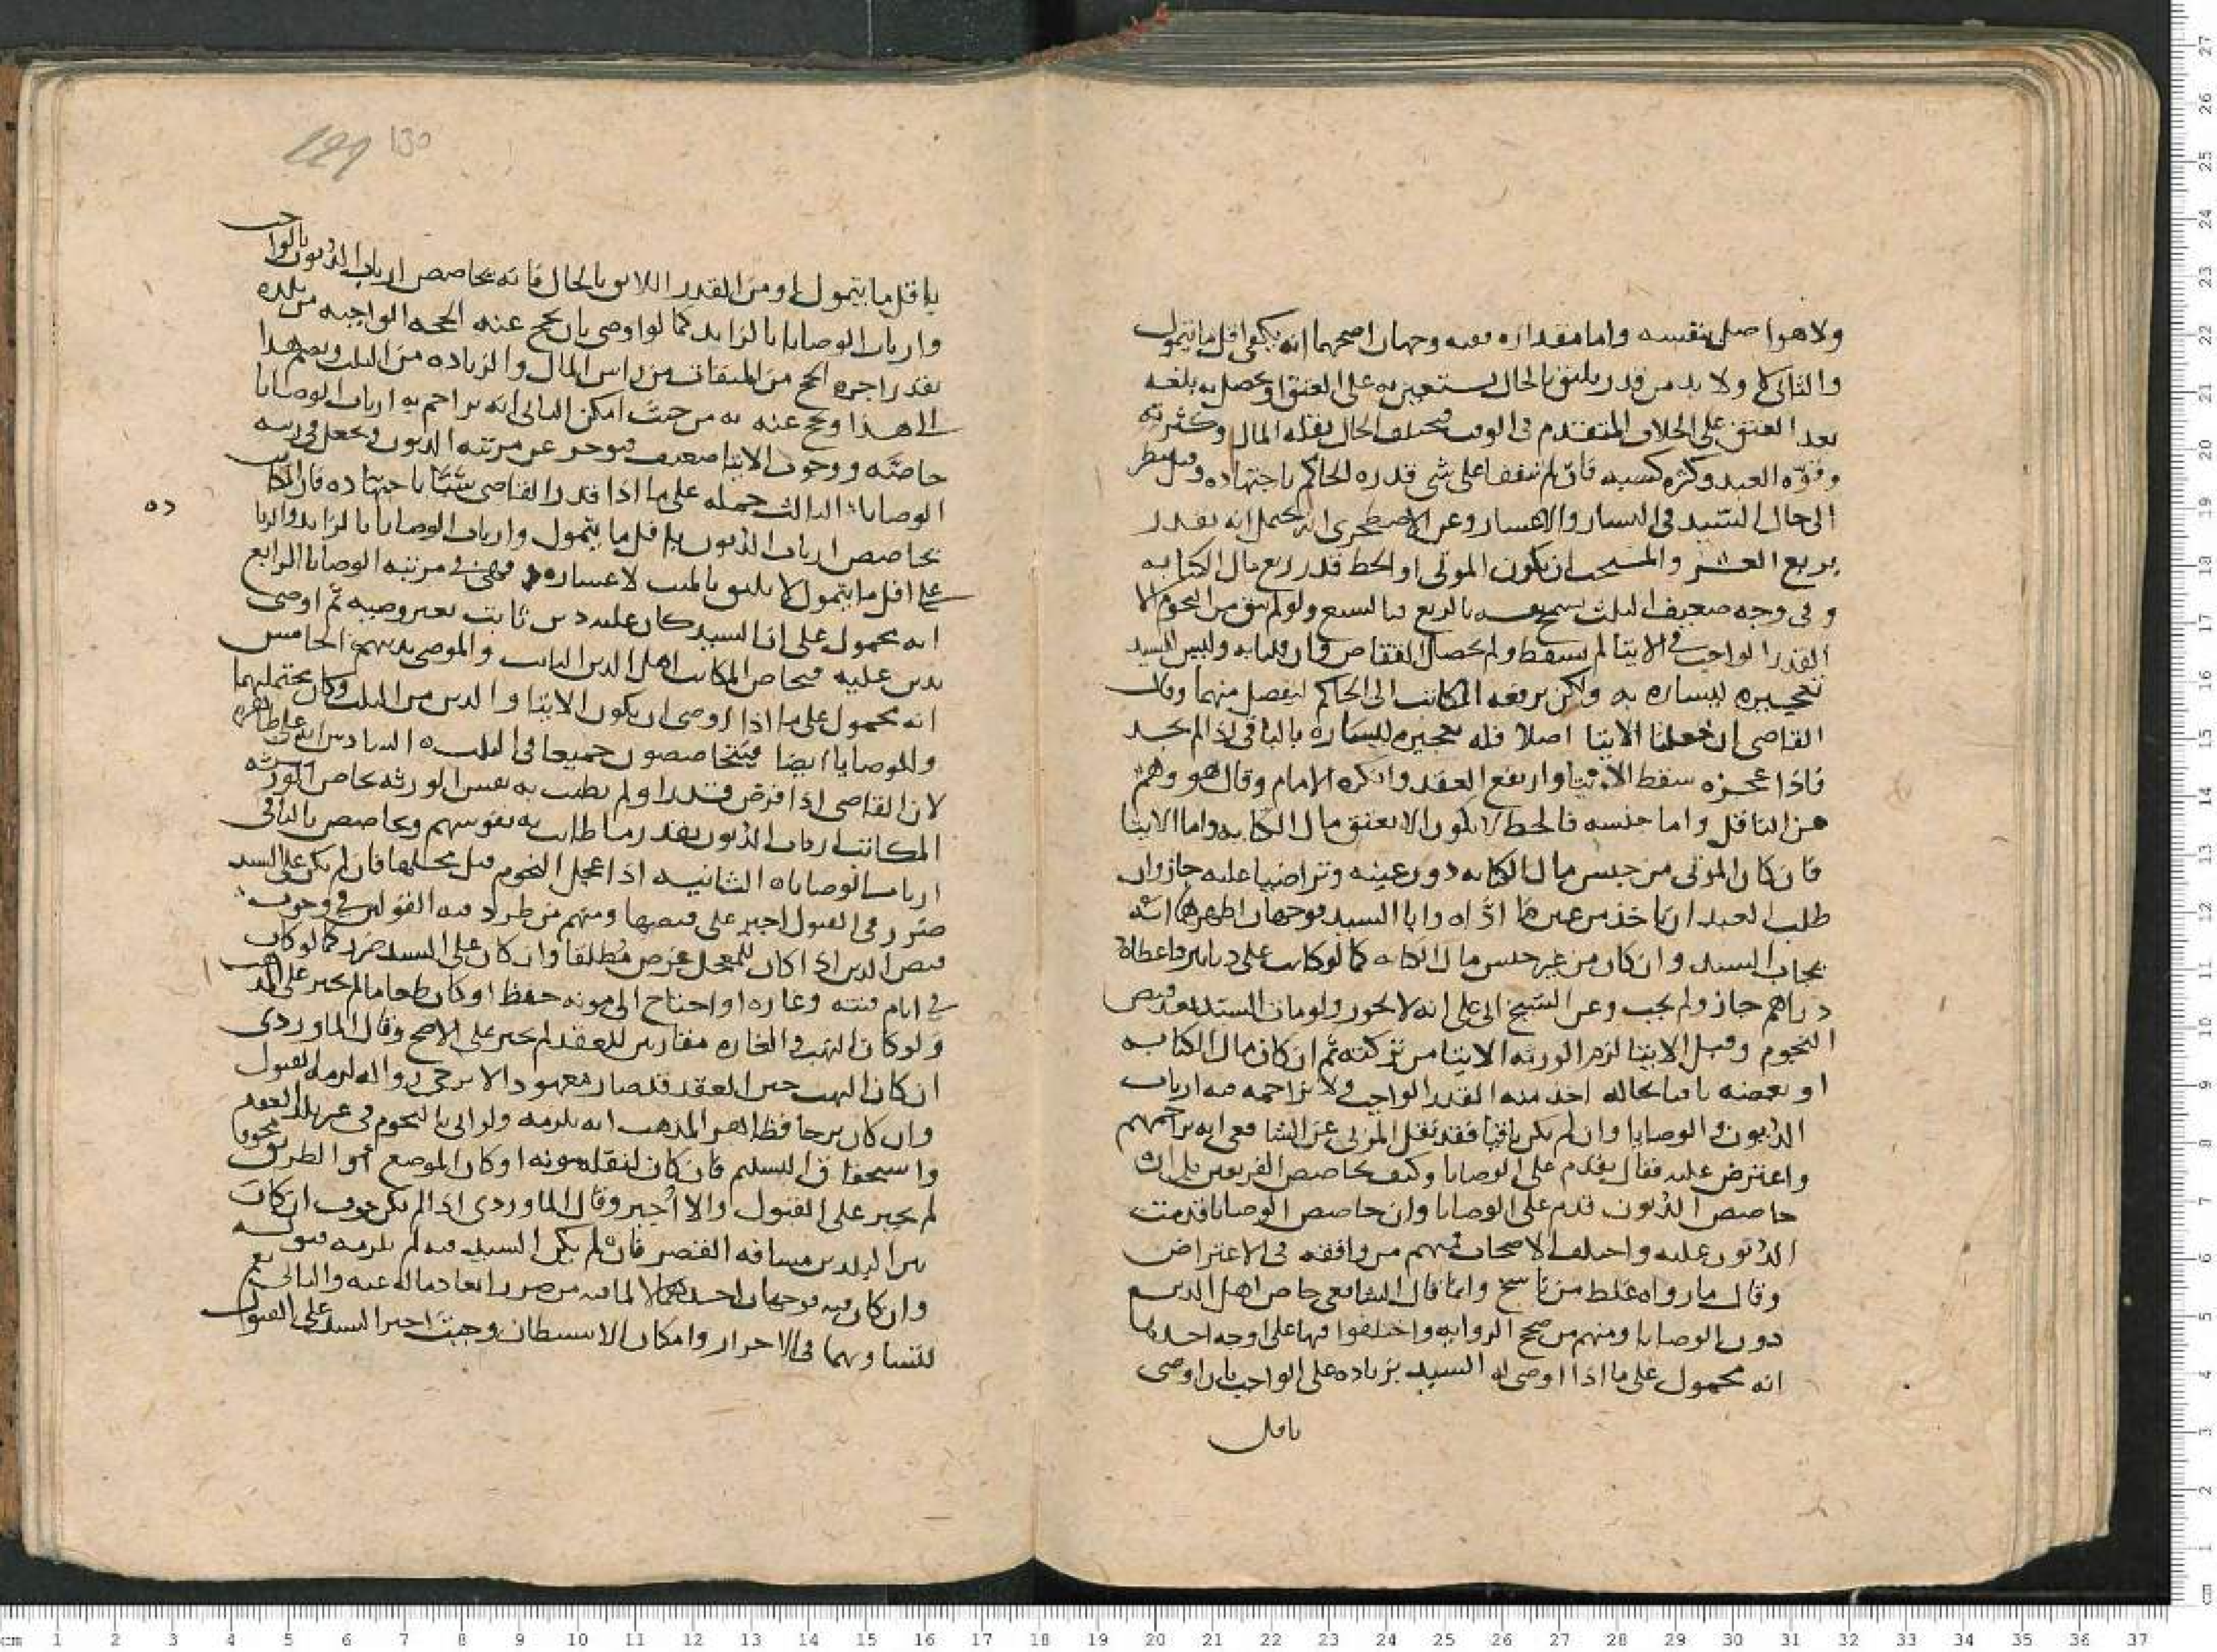 ولا هو اصل بنفسه واما مقداره ففيه وجهان اصحهما انه يكفي اقل ما يتمول
والثاني لا ولا بد من قدر يليق بالحال يستعين به على العتق او يحصل به بلغه
بعد العتق على الخلاف المتقدم في الوقت فيختلف الحال بقله المال وكثرته
وقوه العبد وكثره كسبه فان لم يتفقا على شي قدره الحاكم باجتهاده وقيل ينظر
الى حال السيد في اليسار والاعسار وعن الاصطخري انه يحتمل انه يقدر
بربع العشر والمستحب ان يكون الموتى او الحط قدر ربع مال الكتابه
وفي وجه ضعيف الثلث فان لم يسمح بالربع فبالسبع ولو لم يبق من النجوم الا
القدر الواجب في الايتا لم يسقط ولم يحصل التقاص وان قلنا به وليس للسيد
تعجيزه ليساره به ولكن يرفعه المكاتب الى الحاكم ليفصل بينهما وقال
القاضي ان جعلنا الايتا اصلا فله تعجيزه ليساره بالباقي اذا لم يجد
فاذا عجزه سقط الايتا وارتفع العقد وانكره الامام وقال هو وهم
من الناقل واما جنسه فالحط لا يكون الا بعض مال الكتابه واما الايتا
فان كان الموتى من جنس مال الكتابه دون عينه وتراضيا عليه جاز وان
طلب العبد ان ياخذ من عين ما اداه وابا السيد فوجهان اظهرهما انه
يجاب السيد وان كان من غير جنس مال الكتابه كما لو كاتب على دنانير فاعطاه
دراهم جاز ولم يجب وعن الشيخ ابي علي انه لا يجوز ولو مات السيد بعد قبض
النجوم وقبل الايتا لزم الورثه الايتا من تركته ثم ان كان مال الكتابه
او بعضه باقيا بحاله اخذ منه القدر الواجب ولا يزاحمه فيه ارباب
الديون والوصايا وان لم يكن باقيا فقد نقل المزني عن الشافعي انه يزاحمهم
واعترض عليه فقال يقدم على الوصايا وكيف يحاصص الفريقين بل ان
حاصص الديون قدم على الوصايا وان حاصص الوصايا قدمت
الديون عليه واختلف الاصحاب فمنهم من وافقه في الاعتراض
وقال ما رواه غلط من ناسخ وانما قال الشافعي حاص اهل الدين
دون الوصايا ومنهم من صحح الروايه واختلفوا فيها على اوجه احدها
انه محمول على ما اذا اوصى له السيد بزياده على الواجب بان اوصى
باقل
129 130
باقل ما يتمول او من القدر اللايق بالحال فانه يحاصص ارباب الديون بالواجب
وارباب الوصايا بالزايد كما لو اوصى بان يحج عنه الحجه الواجبه من بلده
بقدر اجره الحج من الميقات من راس المال والزياده من الثلث ويضم هذا
الى هذا ويحج عنه به من حيث امكن الثاني انه يزاحم به ارباب الوصايا
خاصه ووجوب الايتا ضعيف فيوخر عن مرتبه الديون ويجعل في رتبه
الوصايا الثالث حمله على ما اذا قدر القاضي شيئا باجتهاده فان المكاتب
يحاصص ارباب الديون باقل ما يتمول وارباب الوصايا بالزايد والزياده
على اقل ما يتمول لا يليق بالميت لاعساره فهي في مرتبه الوصايا الرابع
انه محمول على ان السيد كان عليه دين ثابت بغير وصيه ثم اوصى
بدين عليه فيحاص المكاتب اهل الدين الثابت والموصى بدينهم الخامس
انه محمول على ما اذا اوصى ان يكون الايتا والدين من الثلث وكان يحتملهما
والوصايا ايضا فيتحاصصون جميعا في الثلث السادس انه على ظاهره
لان القاضي اذا فرض قدرا ولم تطب به نفس الورثه يحاص
المكاتب ارباب الديون بقدر ما طابت به نفوسهم ويحاصص بالباقي
ارباب الوصايا الثانيه اذا عجل النجوم قبل محلها فان لم يكن على السيد
ضرر في القبول اجبر على قبضها ومنهم من طرد فيه القولين في وجوب
قبض الدين اذا كان للمعجل غرض مطلقا وان كان على السيد ضرر كما لو كان
في ايام فتنه وغاره او احتاج الى مونه حفظ او كان طعاما لم يجبر على المذهب
ولو كان النهب والغاره مقارنين للعقد لم يجبر على الاصح وقال الماوردي
ان كان النهب حين العقد قد صار معهودا لا يرجى زواله لزمه القبول
وان كان يرجا فظاهر المذهب انه يلزمه ولو اتى بالنجوم في غير بلد العقد
واستحقاق التسليم فان كان لنقله مونه او كان الموضع او الطريق مخوفا
لم يجبر على القبول والا اجبر وقال الماوردي اذا لم يكن خوف ان كان
بين البلدين مسافه القصر فان لم يكن السيد فيه لم يلزمه قبوله
وان كان فيه فوجهان احدهما لا لما فيه من ضرر ابعاد ماله عنه والثاني نعم
لتساويهما في الاحراز وامكان الاستيطان وحيث اجبر السيد على القبول
ده